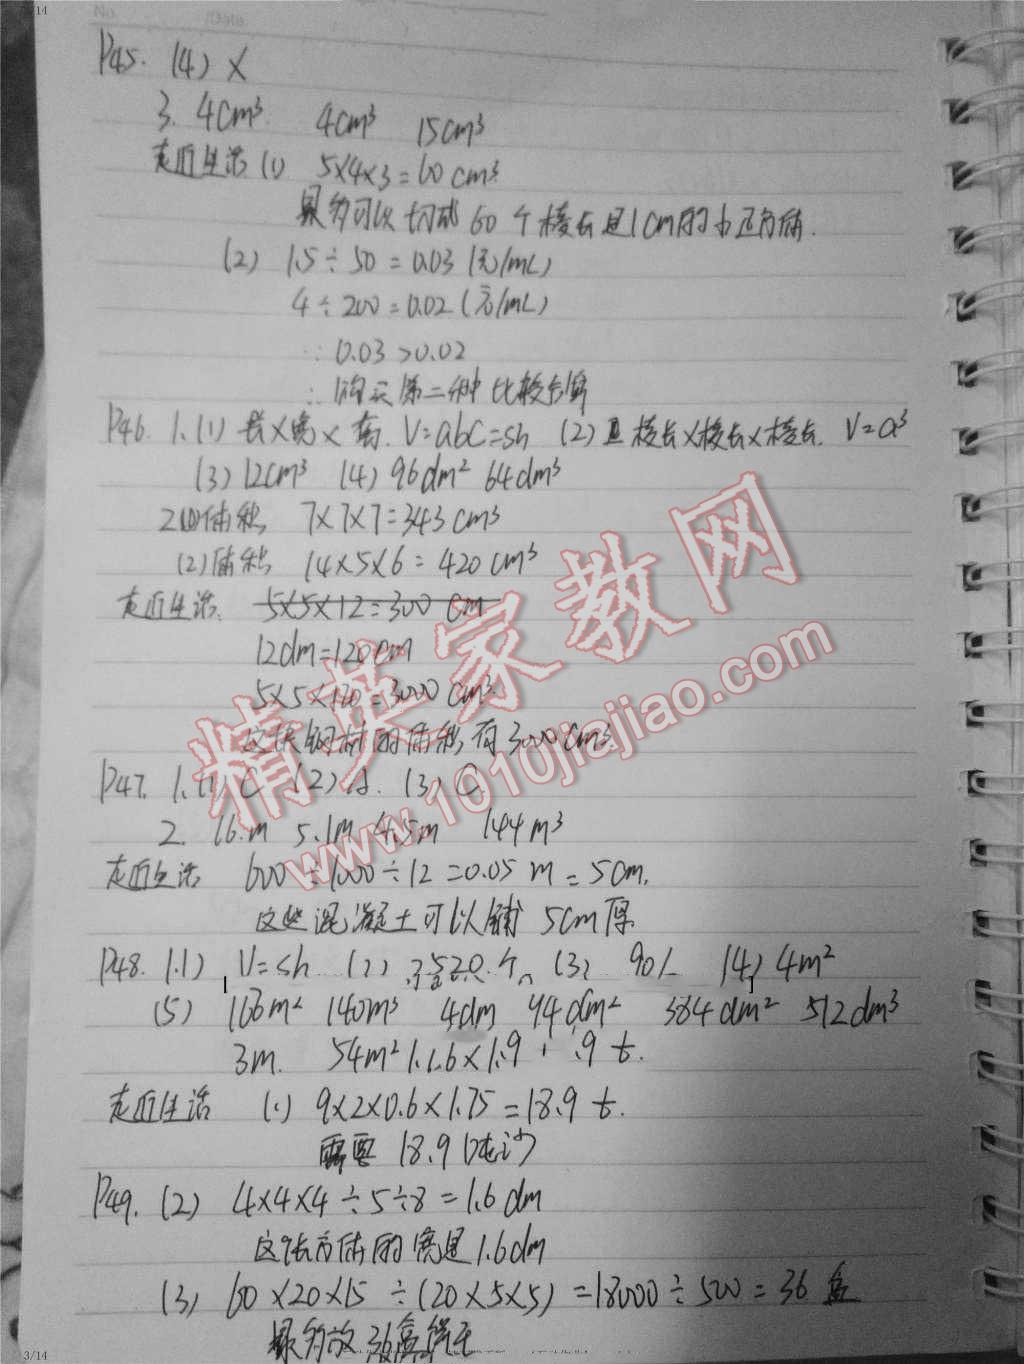 3/14
No. Date
P45. (4) ×
3. 4cm³ 4cm³ 15cm³
走近生活 (1) 5×4×3=60cm³
最多可以切成60个棱长是1cm的小正方体.
(2) 1.5÷50=0.03(元/mL)
4÷200=0.02(元/mL)
∵0.03>0.02
∴购买第二种比较合算
P46. 1.(1) 长×宽×高. V=abc=sh (2) 棱长×棱长×棱长. V=a³
(3) 12cm³ (4) 96dm² 64dm³
2(1)体积 7×7×7=343cm³
(2)体积 14×5×6=420cm³
走近生活. 5×5×12=300cm
12dm=120cm
5×5×120=3000cm³
这根钢材的体积有3000cm³
P47. 1.(1) C (2) A. (3) C.
2. 16.m 5.1m 4.5m 144m³
走近生活 600÷1000÷12=0.05m=5cm.
这些混凝土可以铺5cm厚
P48. 1.1) V=sh (2) 3520.个 (3) 90L (4) 4m²
(5) 166m² 140m³ 4dm 94dm² 384dm² 512dm³
3m. 54m² 1.6×1.9 .9t.
走近生活 (1) 9×2×0.6×1.75=18.9t.
需要18.9吨沙
P49. (2) 4×4×4÷5÷8=1.6dm
这个长方体的宽是1.6dm
(3) 60×20×15÷(20×5×5)=18000÷500=36盒
最多放36盒
精英家教网
www.1010jiajiao.com
3/14